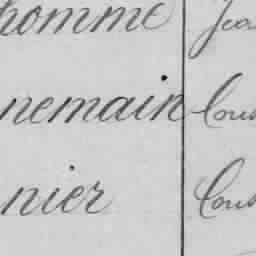 homme Jea
nemain Cous
nier Cous